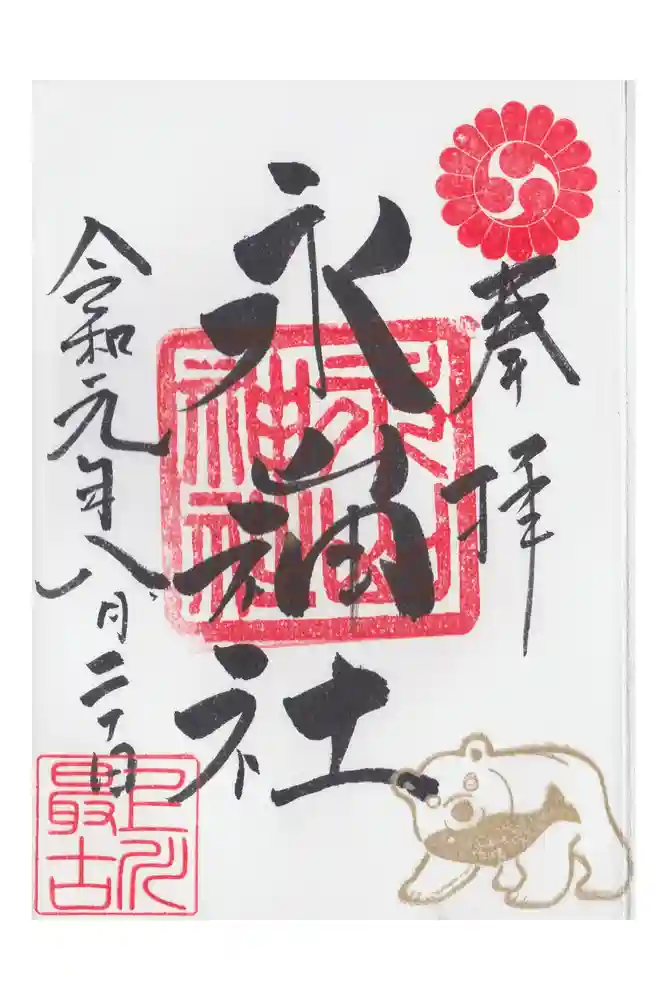 奉拝
永山神社
永山
神社
令和元年八月二十日
旭川
最古